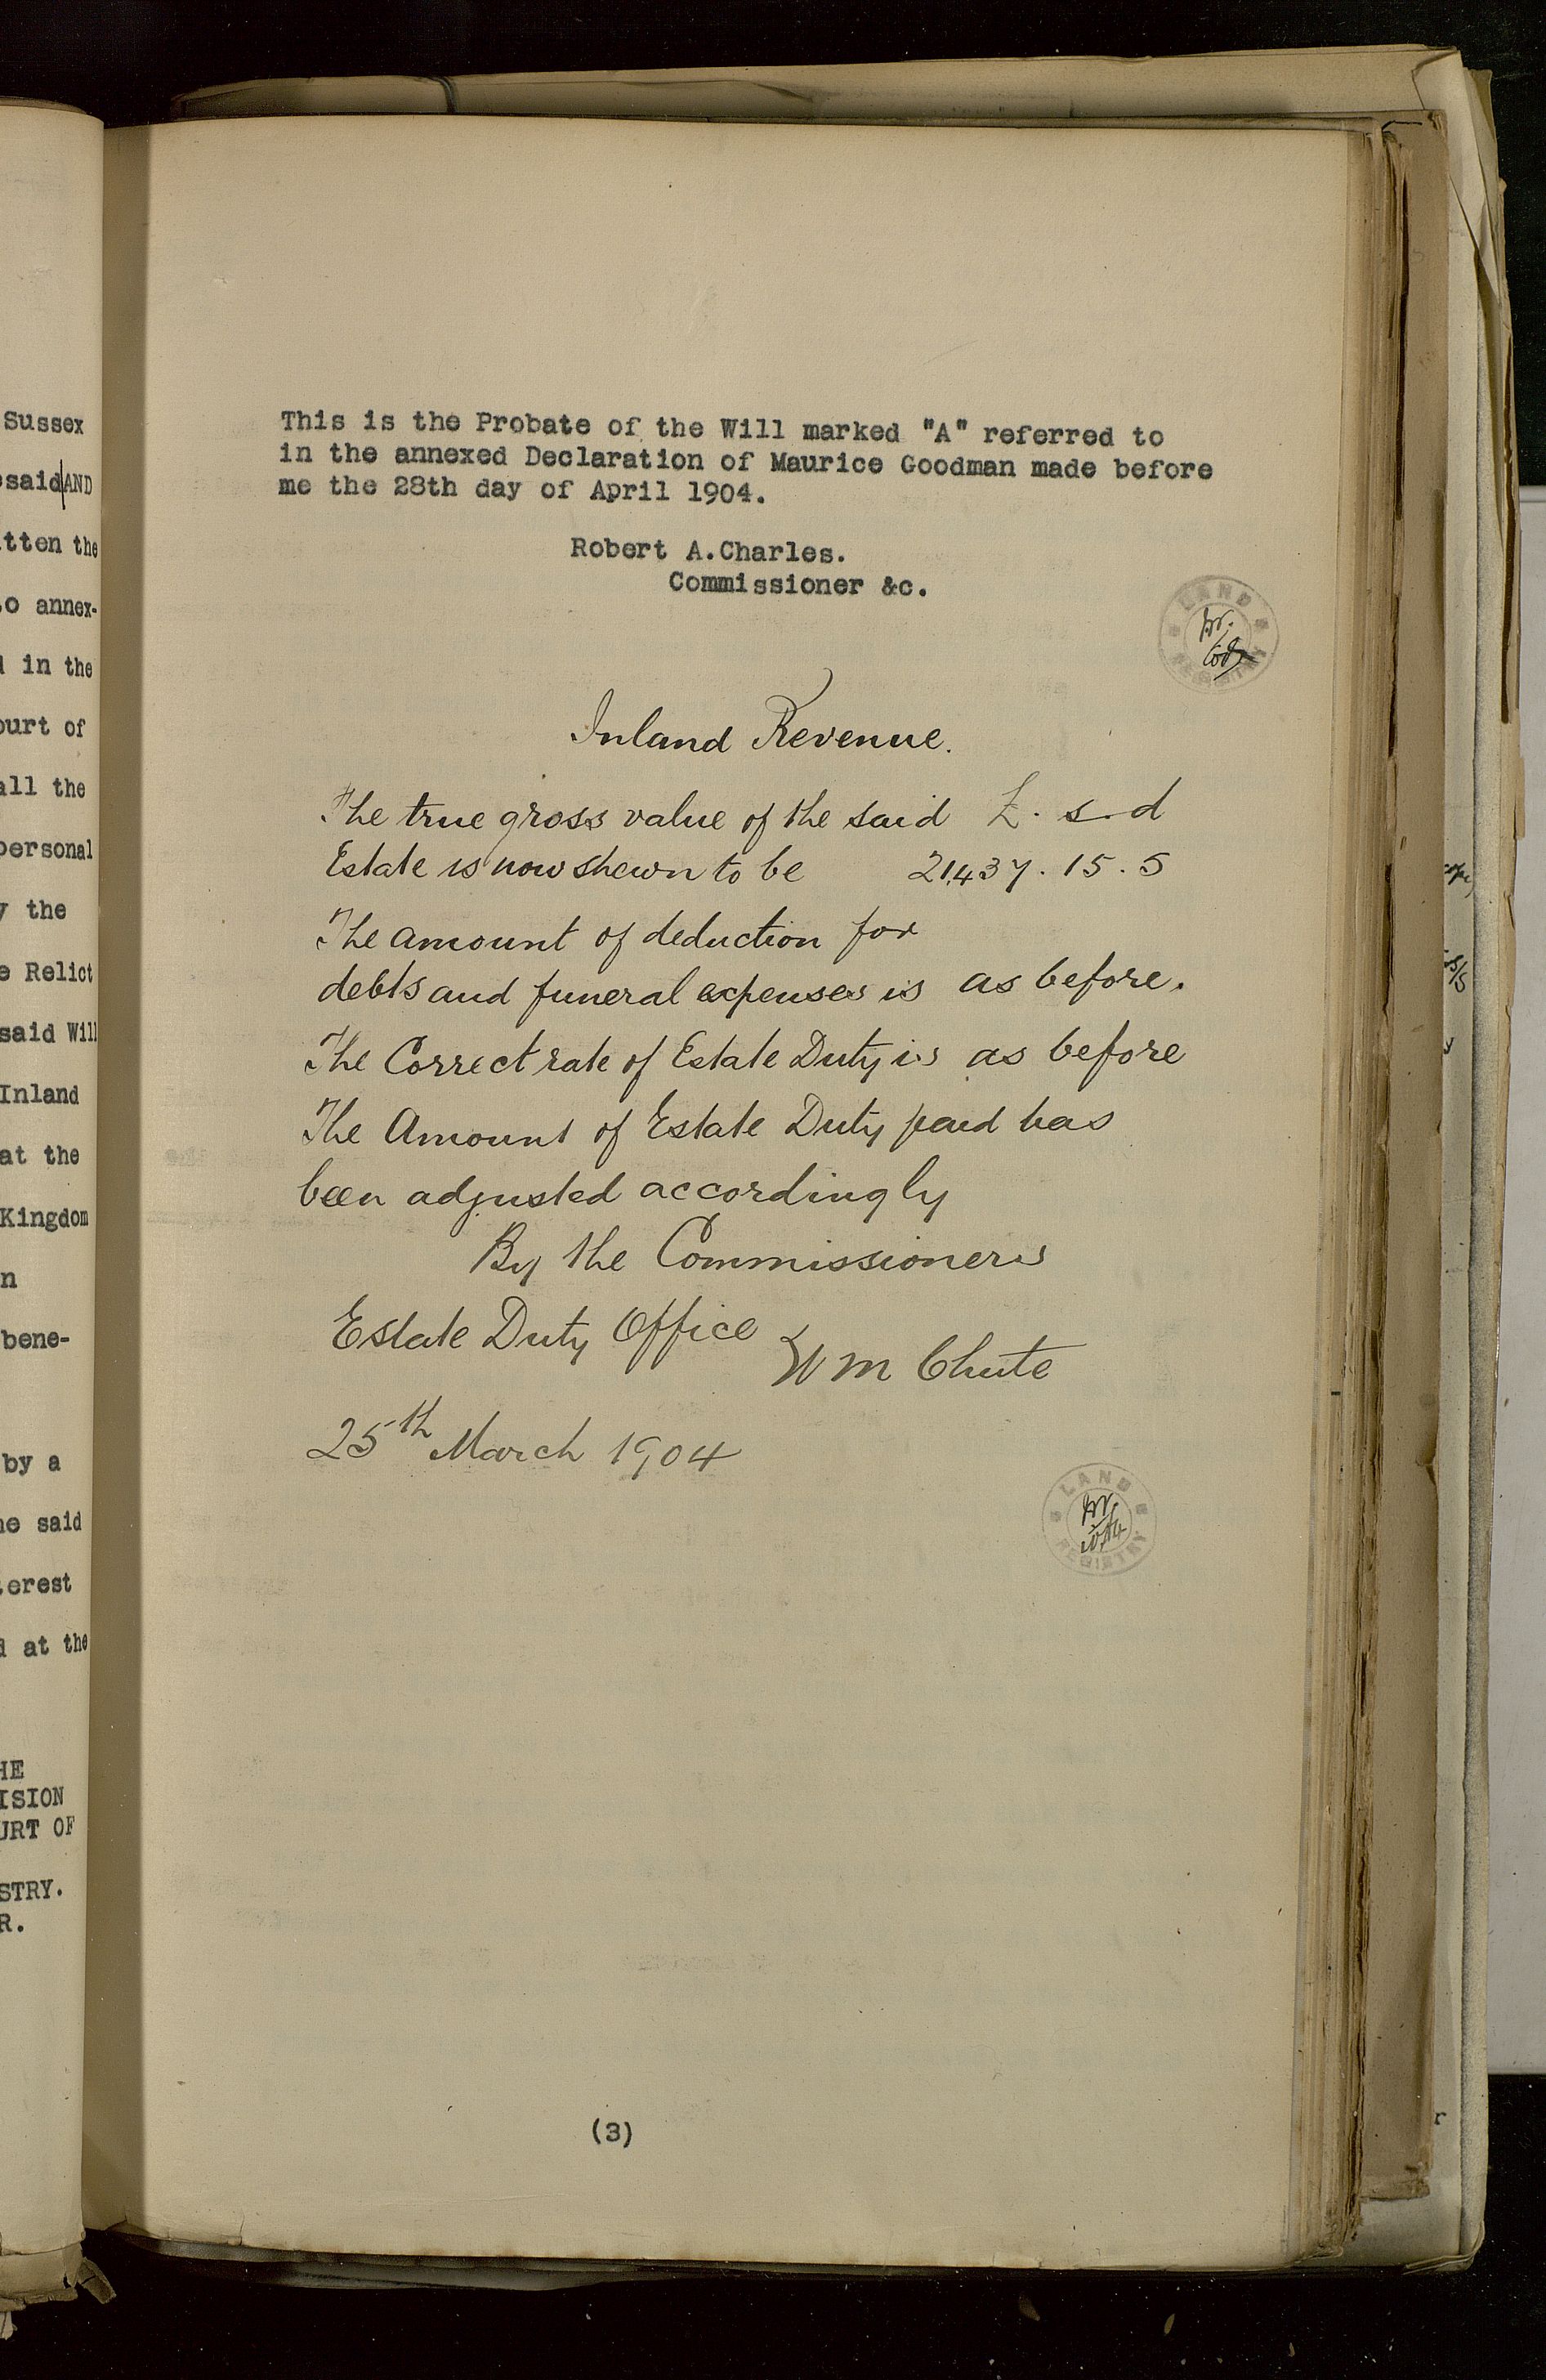 Sussex
said AND
itten the
to annex-
in the
ourt of
all the
personal
the
Relict
said Will
Inland
at the
Kingdom
n
bene-
by a
said
terest
at the
HE
ISION
URT OF
STRY.
R.
This is the Probate of the Will marked "A" referred to
in the annexed Declaration of Maurice Goodman made before
me the 28th day of April 1904.
Robert A.Charles.
Commissioner &c.
LAND
REGISTRY
Inland Revenue.
The true gross value of the said £. s. d
Estate is now shewn to be 21,437. 15. 5
The amount of deduction for
debts and funeral expenses is as before.
The Correct rate of Estate Duty is as before
The Amount of Estate Duty paid has
been adjusted accordingly
By the Commissioners
Estate Duty Office
W M Chute
25th March 1904
LAND
REGISTRY
(3)